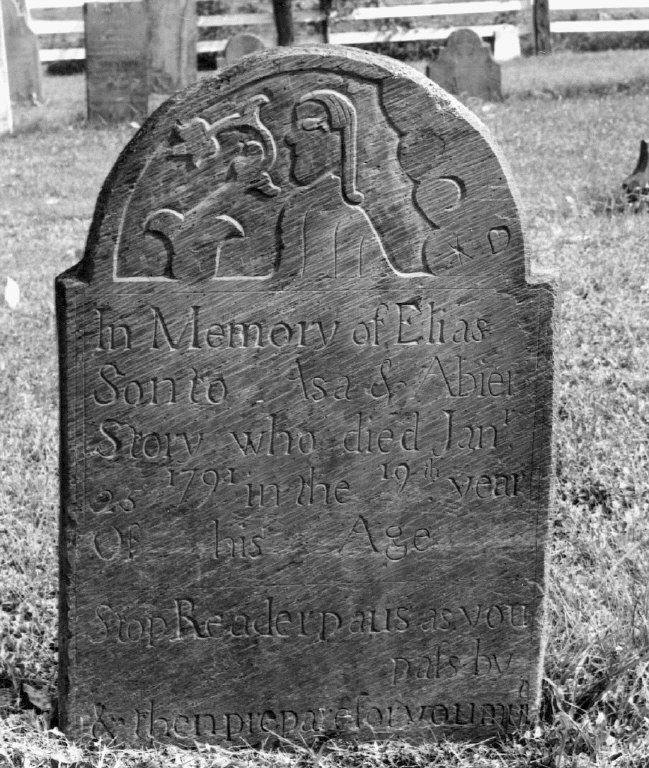 In Memory of Elias
Son to Asa & Abier
Story who died Janr.
26 1791 in the 19th year
Of his Age
Stop Reader paus as you
pals by
& then prepare for you must